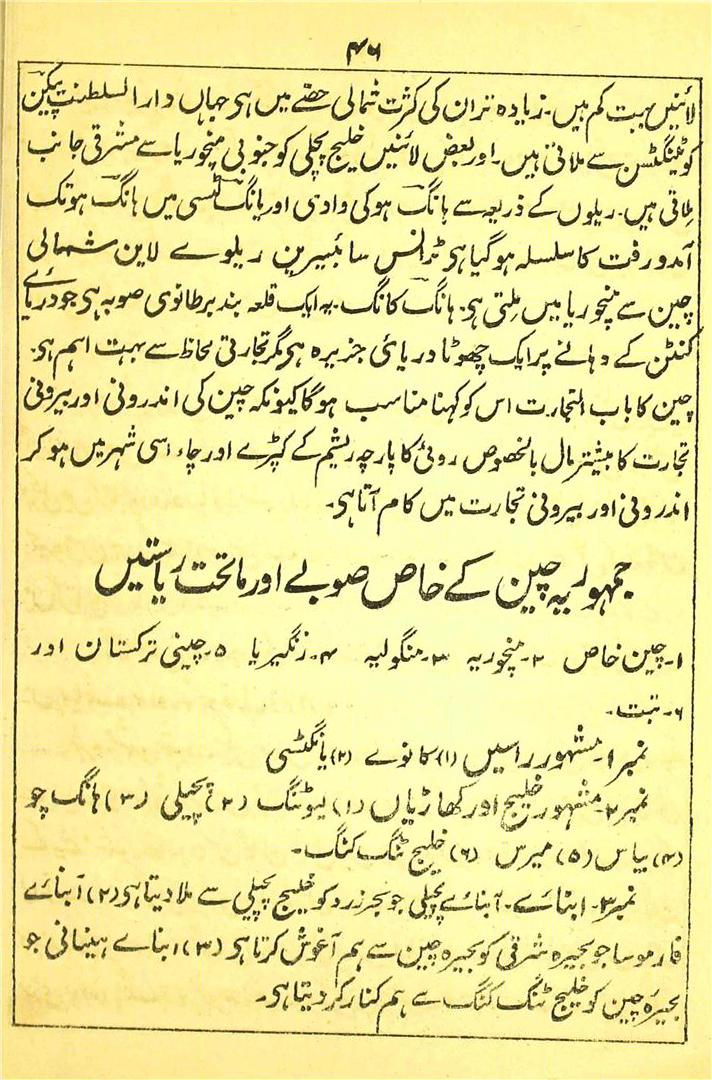 ۴۶
لائنیں بہت کم ہیں۔ زیادہ تر ان کی کثرت شمالی حصّے میں ہی جہاں دارالسلطنت پیکین
کو ٹینگٹسن سے ملاتی ہیں۔ اور بعض لائنیں خلیج پچلی کو جنوبی منچوریا سے مشرقی جانب
ملاتی ہیں۔ ریلوں کے ذریعہ سے ہانگ ہو کی وادی اور یانگ ٹسی میں ہانگ ہو تک
آمدورفت کا سلسلہ ہو گیا ہی ٹرانس سائبیرین ریلوے لاین شمالی
چین سے منچوریا میں ملتی ہی۔ ہانگ کانگ۔ یہ ایک قلعہ بند برطانوی صوبہ ہی جو دریائے
کنٹن کے دہانے پر ایک چھوٹا دریائی جزیرہ ہی مگر تجارتی لحاظ سے بہت اہم ہی۔
چین کا باب التجارت اس کو کہنا مناسب ہوگا کیونکہ چین کی اندرونی اور بیرونی
تجارت کا بیشتر مال بالخصوص روئی کا پارچہ ریشم کے کپڑے اور چاء اسی شہر میں ہو کر
اندرونی اور بیرونی تجارت میں کام آتا ہی۔
جمہوریہ چین کے خاص صوبے اور ماتحت ریاستیں
۱۔ چین خاص ۲۔ منچوریہ ۳۔ منگولیہ ۴۔ زنگیریا ۵۔ چینی ترکستان اور
۶۔ تبت۔
نمبر ۱۔ مشہور راسیں (۱) کانوے (۲) یانگٹسی
نمبر ۲۔ مشہور خلیج اور کھاڑیاں (۱) لیوٹنگ (۲) پچیلی (۳) ہانگ چو
(۴) بیاس (۵) میرس (۶) خلیج ٹنگ کنگ۔
نمبر ۳۔ ابنائے۔ آبنائے پچلی جو بحر زرد کو خلیج پچیلی سے ملا دیتا ہی (۲) آبنائے
فارموسا جو بحیرہ شرقی کو بحیرہ چین سے ہم آغوش کرتا ہی (۳) ابناے ہینانی جو
بحیرہ چین کو خلیج ٹنگ کنگ سے ہم کنار کر دیتا ہی۔